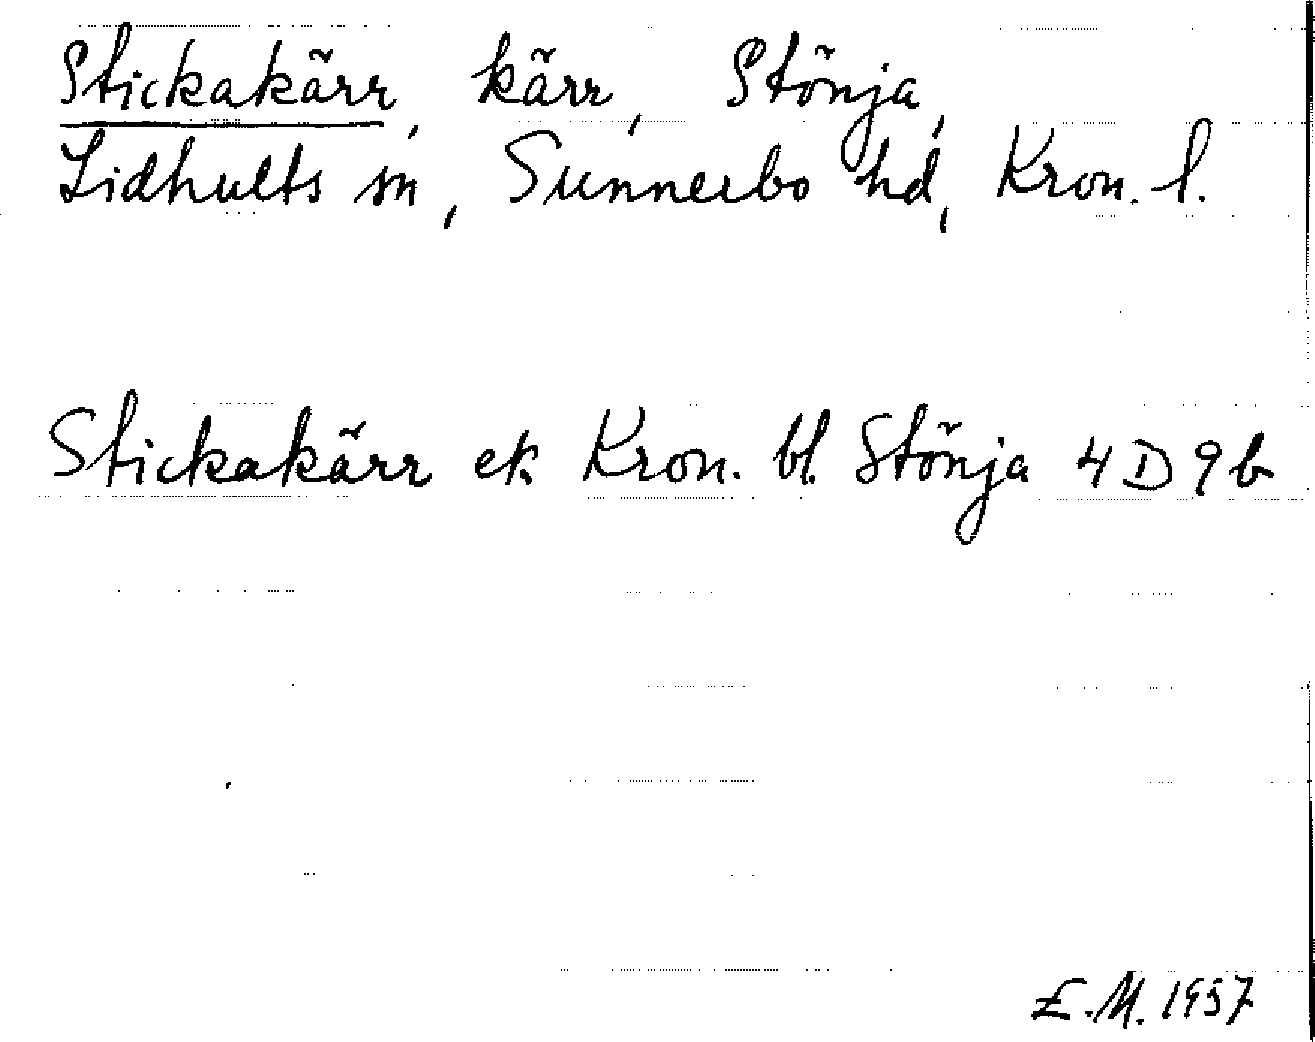 Stickakärr, kärr, Stönja,
Lidhults sn, Sunnerbo hd, Kron. l.
Stickakärr ek Kron. bl. Stönja 4 D 9 b
E.M. 1957